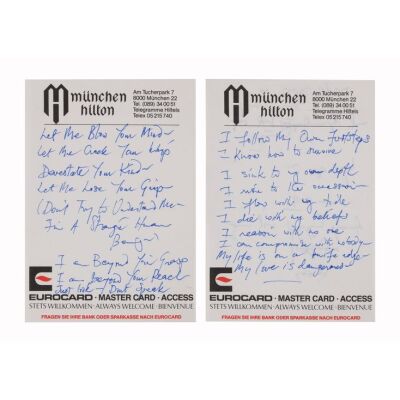 münchen
hilton
Am Tucherpark 7
8000 München 22
Tel. (089) 34 00 51
Telegramme Hiltels
Telex 05 215 740
Let Me Blow Your Mind
Let Me Crack Your
Devastate Your Kind
Let Me Lose Your Grip
(Don't Try to Understand Me
I'm A Strange Human
Being)
I am Beyond Your Grasp
I am Beyond Your Reach
Just look - Don't Speak
EUROCARD · MASTER CARD · ACCESS
STETS WILLKOMMEN · ALWAYS WELCOME · BIENVENUE
FRAGEN SIE IHRE BANK ODER SPARKASSE NACH EUROCARD
münchen
hilton
Am Tucherpark 7
8000 München 22
Tel. (089) 34 00 51
Telegramme Hiltels
Telex 05 215 740
I follow My Own Footsteps
I know how to survive
I sink to my own depth
I rise to the occasion
I flow with my tide
I die with my beliefs
I reason with no one
I can compromise with nobody
My life is on a knife edge
My love is dangerous
EUROCARD · MASTER CARD · ACCESS
STETS WILLKOMMEN · ALWAYS WELCOME · BIENVENUE
FRAGEN SIE IHRE BANK ODER SPARKASSE NACH EUROCARD